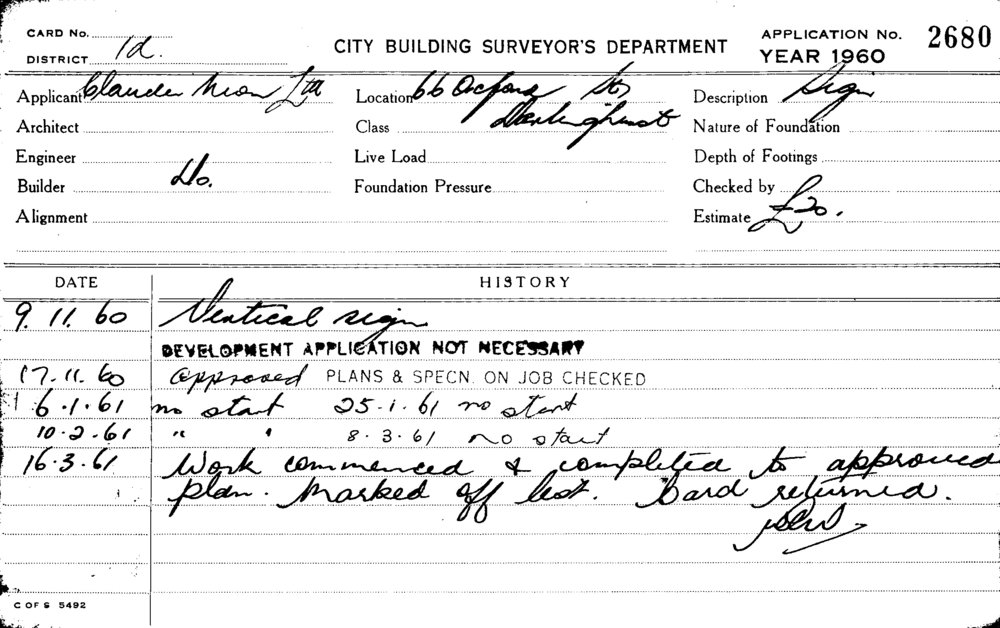 CARD No.
DISTRICT 1d.
CITY BUILDING SURVEYOR'S DEPARTMENT
APPLICATION No. 2680
YEAR 1960
Applicant Claude Neon Ltd
Location 66 Oxford St, Darlinghurst
Description Sign
Architect
Class
Nature of Foundation
Engineer
Live Load
Depth of Footings
Builder Do.
Foundation Pressure
Checked by
Alignment
Estimate £20.
DATE HISTORY
9.11.60 Vertical sign
DEVELOPMENT APPLICATION NOT NECESSARY
17.11.60 approved PLANS & SPECN. ON JOB CHECKED
6.1.61 no start 25.1.61 no start
10.2.61 " " 8.3.61 no start
16.3.61 Work commenced & completed to approved
plan. Marked off list. Card returned.
C OF S 5492